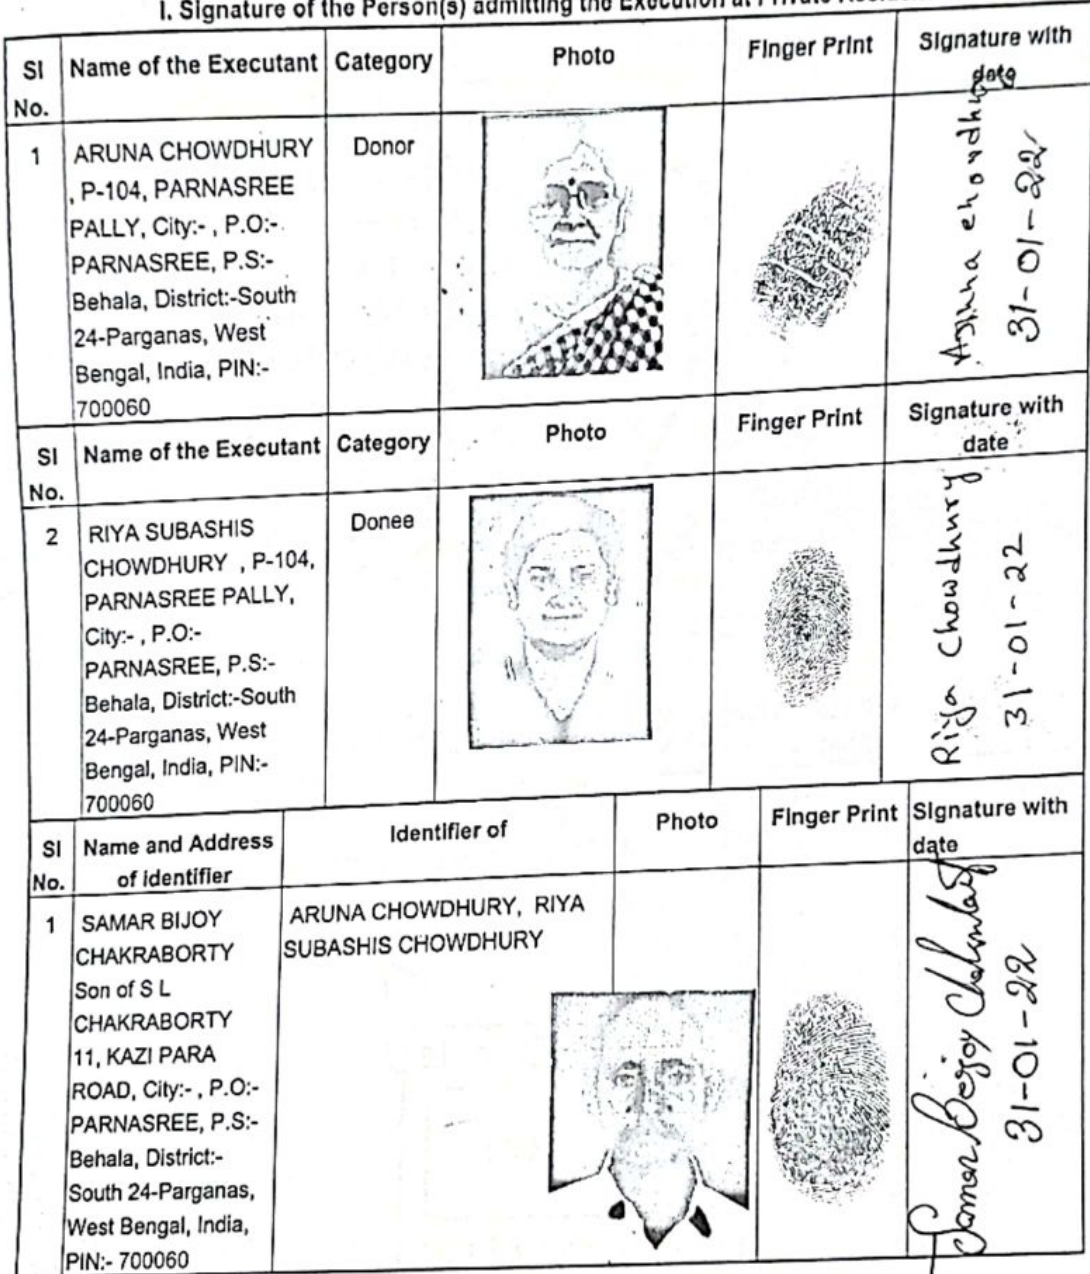 I. Signature of the Person(s) admitting the Execution at Private
SI No.
Name of the Executant
Category
Photo
Finger Print
Signature with date
1
ARUNA CHOWDHURY
, P-104, PARNASREE
PALLY, City:- , P.O:-
PARNASREE, P.S:-
Behala, District:-South
24-Parganas, West
Bengal, India, PIN:-
700060
Donor
chowdhu
31-01-22
SI No.
Name of the Executant
Category
Photo
Finger Print
Signature with date
2
RIYA SUBASHIS
CHOWDHURY , P-104,
PARNASREE PALLY,
City:- , P.O:-
PARNASREE, P.S:-
Behala, District:-South
24-Parganas, West
Bengal, India, PIN:-
700060
Donee
Riya Chowdhury
31-01-22
SI No.
Name and Address
of identifier
Identifier of
Photo
Finger Print
Signature with
date
1
SAMAR BIJOY
CHAKRABORTY
Son of S L
CHAKRABORTY
11, KAZI PARA
ROAD, City:- , P.O:-
PARNASREE, P.S:-
Behala, District:-
South 24-Parganas,
West Bengal, India,
PIN:- 700060
ARUNA CHOWDHURY, RIYA
SUBASHIS CHOWDHURY
Samar Bijoy
31-01-22